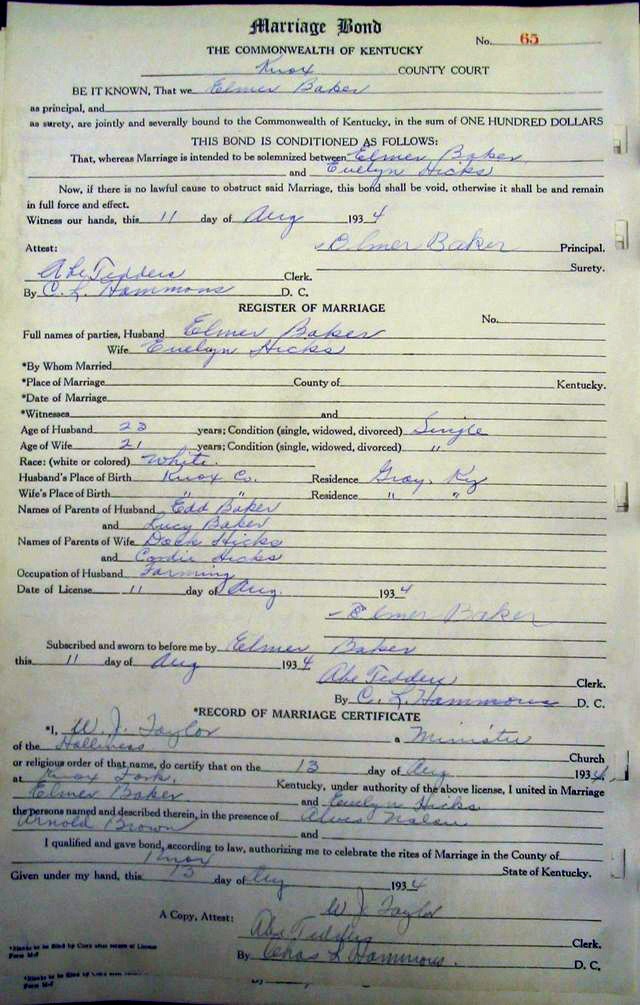 Marriage Bond
No. 65
THE COMMONWEALTH OF KENTUCKY
Knox COUNTY COURT
BE IT KNOWN, That we Elmer Baker
as principal, and
as surety, are jointly and severally bound to the Commonwealth of Kentucky, in the sum of ONE HUNDRED DOLLARS
THIS BOND IS CONDITIONED AS FOLLOWS:
That, whereas Marriage is intended to be solemnized between Elmer Baker
and Evelyn Hicks
Now, if there is no lawful cause to obstruct said Marriage, this bond shall be void, otherwise it shall be and remain
in full force and effect.
Witness our hands, this 11 day of Aug 1934
Elmer Baker Principal.
Attest:
Surety.
Abe Tedders Clerk.
By C. L. Hammons D. C.
REGISTER OF MARRIAGE
No.
Full names of parties, Husband Elmer Baker
Wife Evelyn Hicks
*By Whom Married
*Place of Marriage County of Kentucky.
*Date of Marriage
*Witnesses and
Age of Husband 23 years; Condition (single, widowed, divorced) Single
Age of Wife 21 years; Condition (single, widowed, divorced) "
Race: (white or colored) White.
Husband's Place of Birth Knox Co. Residence Gray, Ky
Wife's Place of Birth " " Residence " "
Names of Parents of Husband Edd Baker
and Lucy Baker
Names of Parents of Wife Dock Hicks
and Cordie Hicks
Occupation of Husband Farming
Date of License 11 day of Aug. 1934
Elmer Baker
Subscribed and sworn to before me by Elmer Baker
this 11 day of Aug 1934
Abe Tedders Clerk.
By C. L. Hammons D. C.
*RECORD OF MARRIAGE CERTIFICATE
*I, W. J. Taylor a Minister
of the Holliness Church
or religious order of that name, do certify that on the 13 day of Aug 1934
at Knox Fork, Kentucky, under authority of the above license, I united in Marriage
Elmer Baker and Evelyn Hicks
the persons named and described therein, in the presence of
Arnold Brown and
I qualified and gave bond, according to law, authorizing me to celebrate the rites of Marriage in the County of
Knox State of Kentucky.
Given under my hand, this 13 day of Aug 1934
W J Taylor
A Copy, Attest:
Abe Tedders Clerk.
By Chas L Hammons. D. C.
*Blanks to be filled by Clerk after return of License
Form M-F